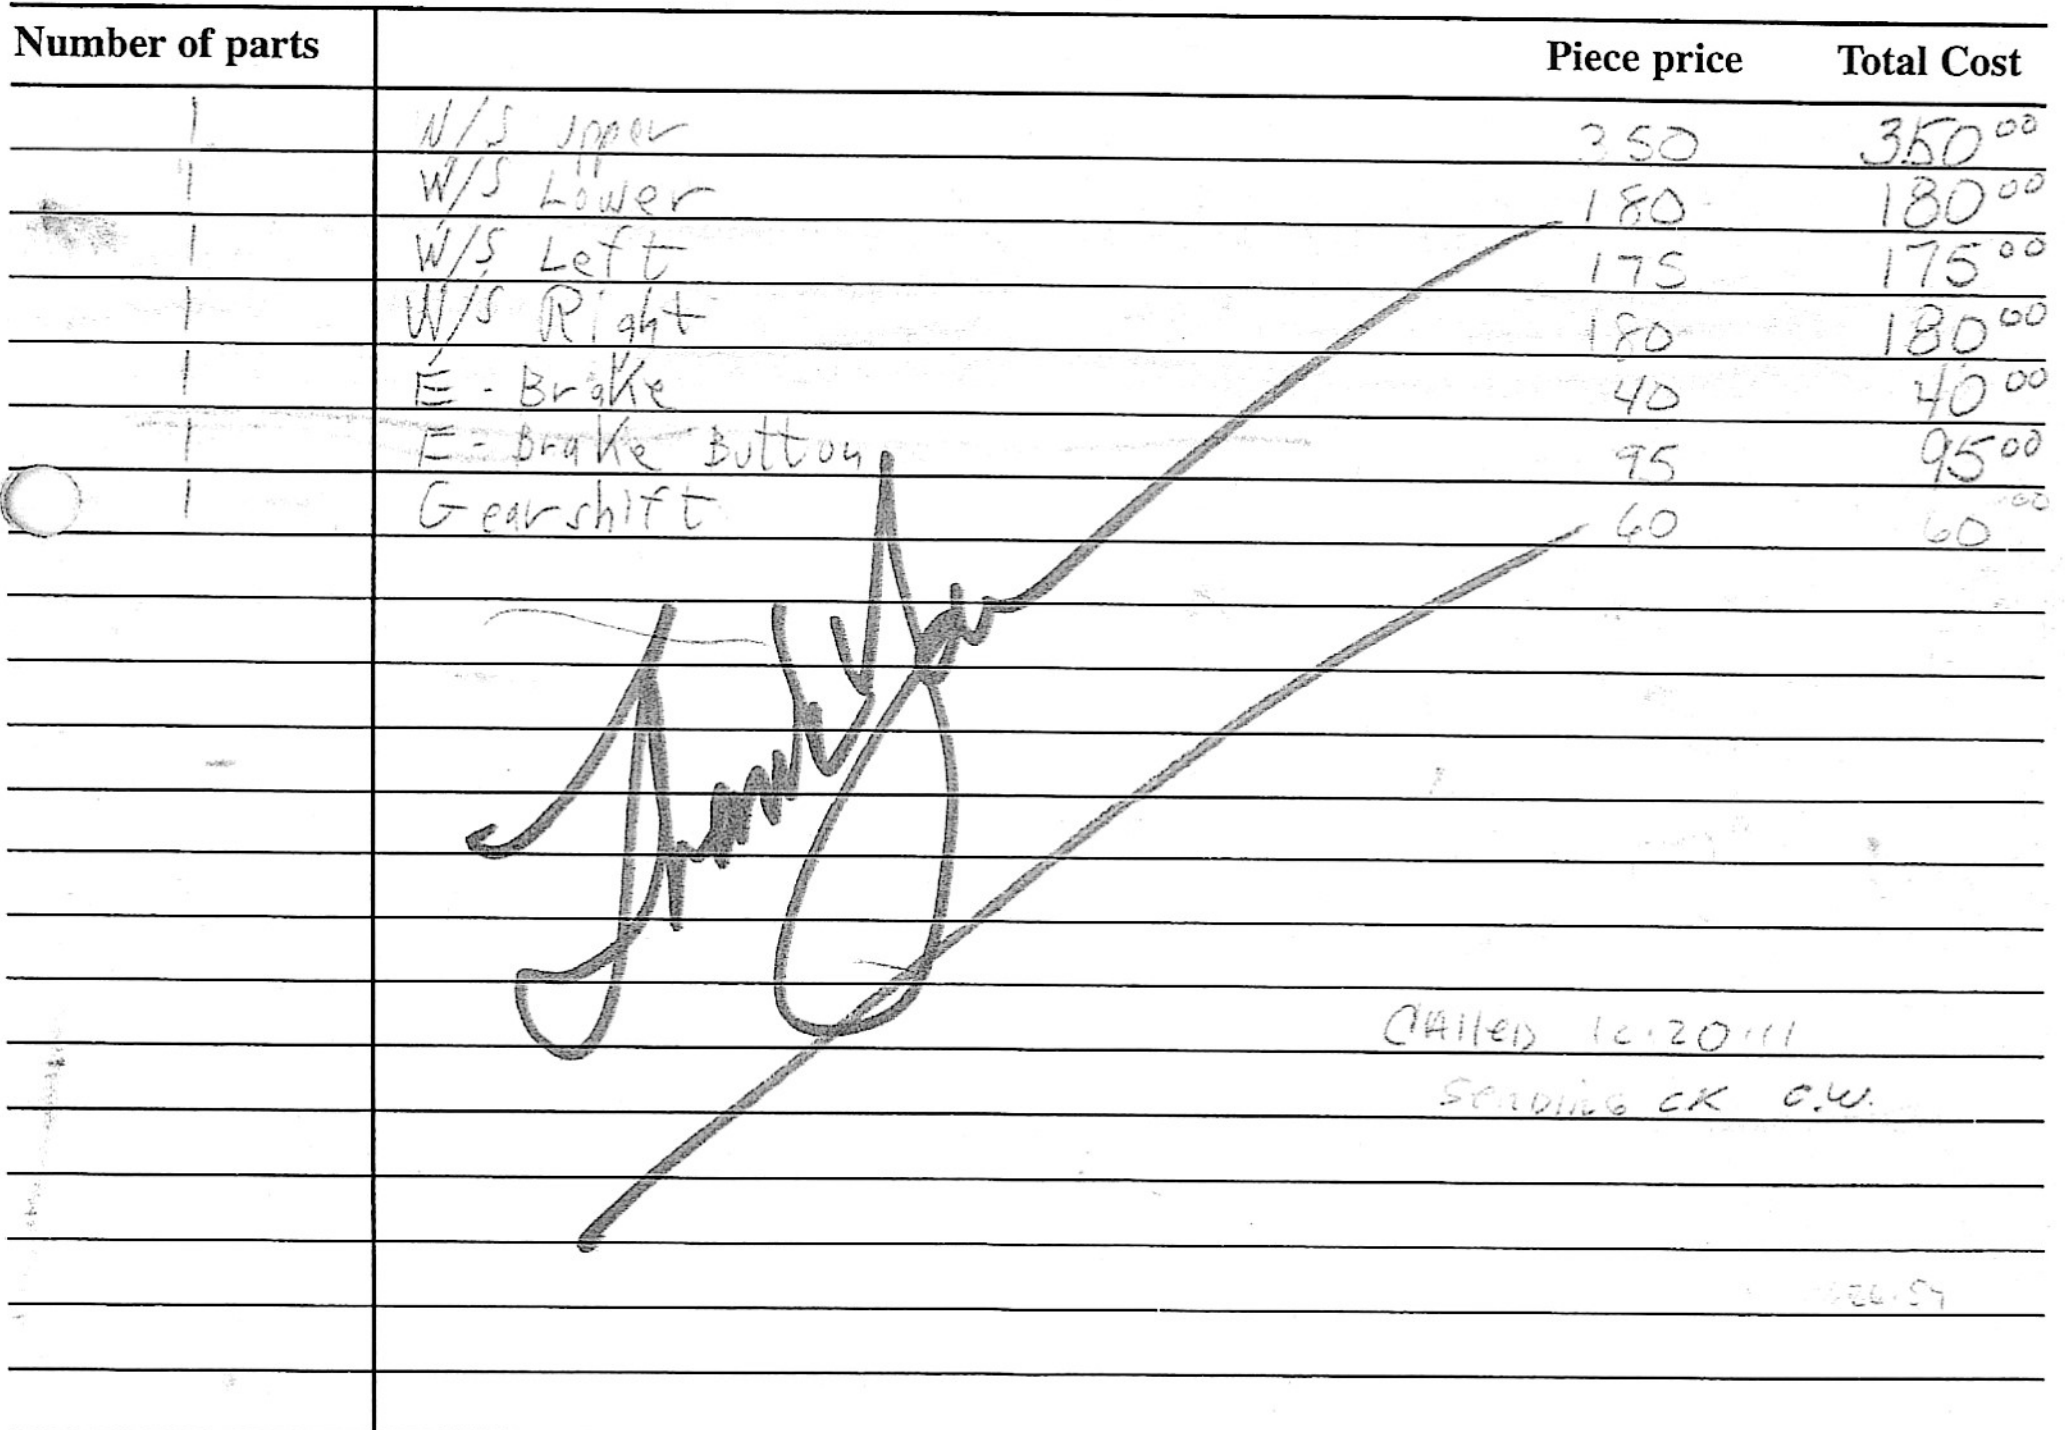 Number of parts Piece price Total Cost
1 W/S Upper 350 350 00
1 W/S Lower 180 180 00
1 W/S Left 175 175 00
1 W/S Right 180 180 00
1 E - Brake 40 40 00
1 E - Brake Button 95 95 00
1 Gearshift 60 60 00
Thank You
CAlleD 10·20·11
SenDinG CK C.W.